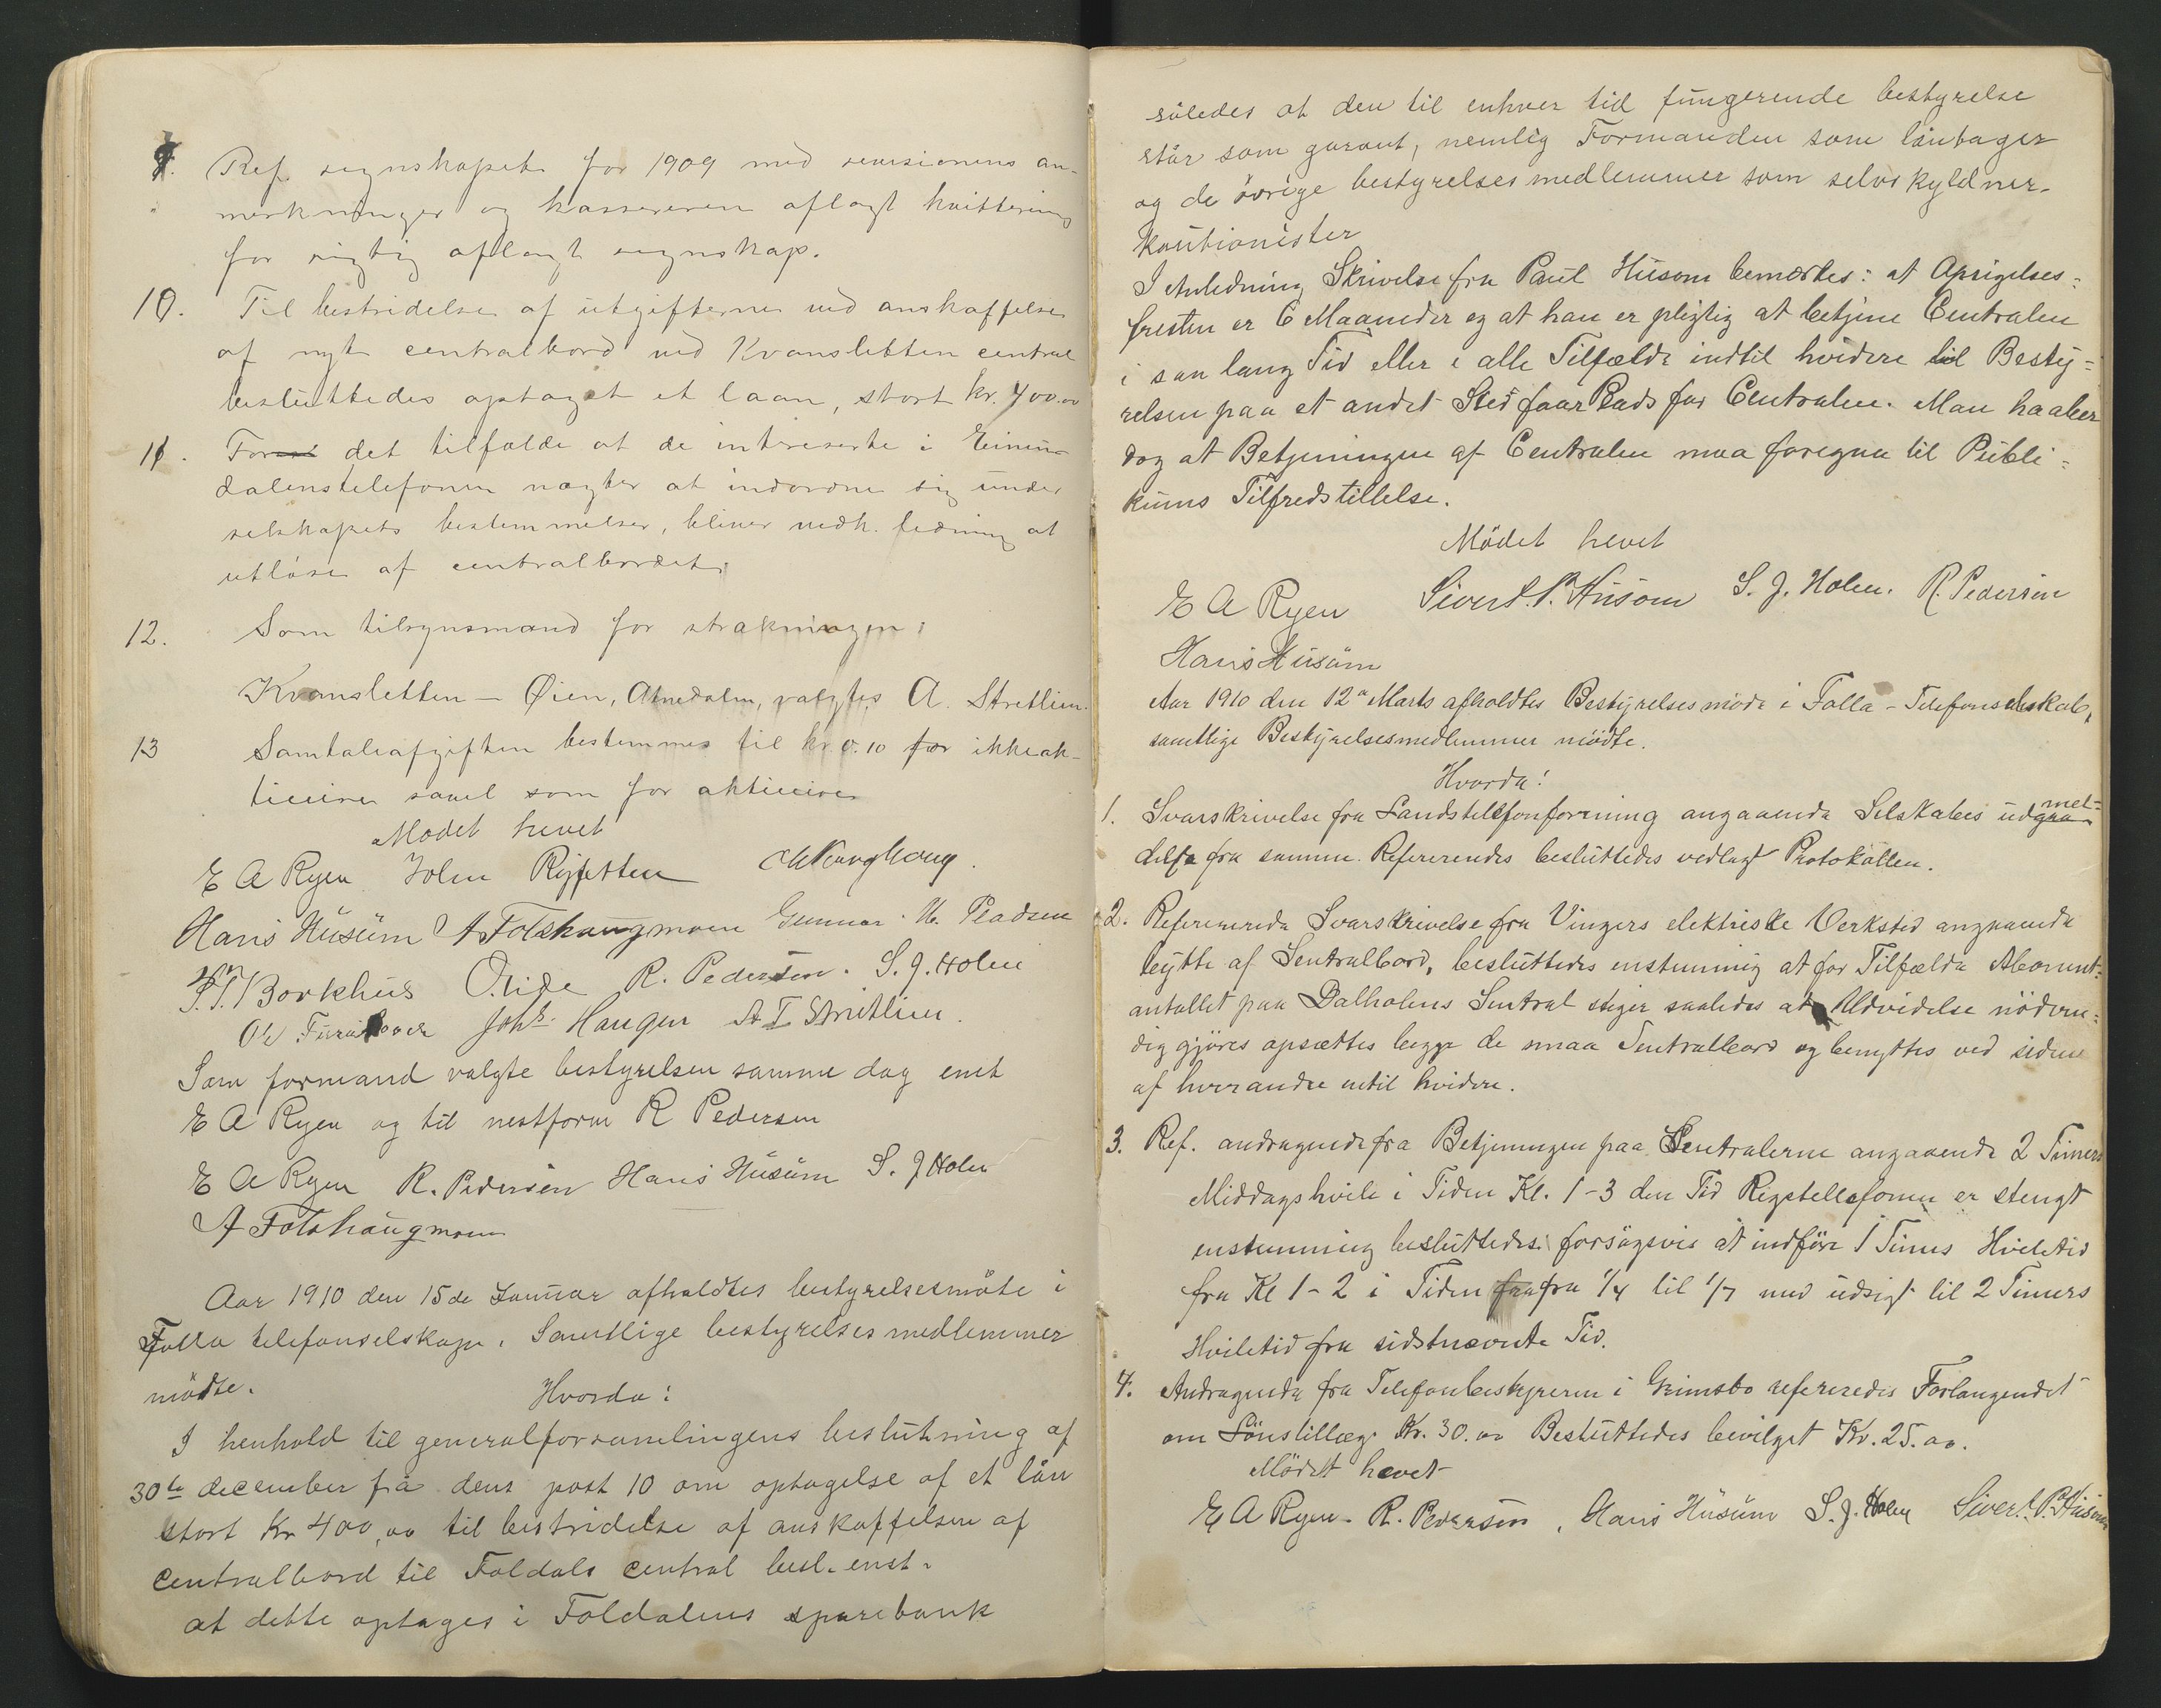 9. Ref. regnskapet for 1909 med revisionens an-
merkninger og kassereren aflagt kvittering
for rigtig aflagt regnskap.
10. Til bestridelse af utgifterne ved anskaffelse
af nyt centralbord ved Kvansletten central
besluttedes optaget et laan, stort kr. 400.00
11. For det tilfælde at de intereserte i Einun-
dalenstelefonen nægter at indordne sig under
selskapets bestemmelser, bliver vedk. ledning at
utløse af centralbordet.
12. Som tilsynsmand for strækningen:
Kvansletten – Øien, Atnedalen, valgtes A. Stretlien.
13 Samtaleafgiften bestemmes til kr. 0.10 for ikkeak-
tieeiere savel som for aktieeiere
Mødet hevet
E A Ryen John
Hans Husum A Folshaugmoen Gunnar Pladsen
Borkhus R. Pedersen. S. J. Holen
Joh. Haugen A T Stretlien.
Som formand valgte bestyrelsen samme dag enst
E A Ryen og til nestform R Pedersen
E A Ryen R. Pedersen Hans Husum S. J Holen
A Folshaugmoen
Aar 1910 den 15de Januar afholdtes bestyrelsesmöte i
Folla telefonselskap. Samtlige bestyrelsesmedlemmer
mödte. Hvorda:
I henhold til generalforsamlingens beslutning af
30te december frå dens post 10 om optagelse af et lån
stort Kr 400,00 til bestridelse af anskaffelsen af
Centralbord til Foldals central besl. enst.
at dette optages i Foldalens sparebank
således at den til enhver tid fungerende bestyrelse
står som garant, nemlig Formanden som låntager
og de övrige bestyrelsesmedlemmer som selvskyldner-
kautionister
I Anledning Skrivelse fra Paul Husom bemærkes: at Opsigelses=
fristen er 6 Maaneder og at han er pligtig at betjene Centralen
i saa lang Tid eller i alle Tilfælde indtil hvidere til Besty=
relsen paa et andet Sted faar Plads for Centralen. Man haaber
dog at Betjeningen af Centralen maa foregaa til Publi=
kums Tilfredstillelse.
Mödet hevet
E A Ryen Sivert P. Husom S. J. Holen. R. Pedersen
Hans Husum
Aar 1910 den 12te Marts afholdtes Bestyrelsesmöde i Folla-Telefonselskab,
samtlige Bestyrelsesmedlemmer mödte.
Hvorda:
1. Svarskrivelse fra Landstelefonforening angaaende Selskabets udmel-
delse fra samme. Refererendes besluttedes vedlagt Protokollen.
2. Refererende Svarskrivelse fra Vingers elektriske Verksted angaaende
bytte af Sentralbord, besluttedes enstemmig at for Tilfælde Abonent=
antallet paa Dalholens Sentral stiger saaledes at Udvidelse nödven=
dig gjöres opsættes begge de smaa Sentralbord og benyttes ved siden
af hverandre intil hvidere.
3. Ref. andragende fra Betjeningen paa Sentralerne angaaende 2 Timers
Middagshvile i Tiden Kl. 1-3 den Tid Rigstellefonen er stengt
enstemmig besluttedes forsögsvis at indföre 1 Times Hviletid
fra Kl 1-2 i Tiden fra 1/4 til 1/7 med udsigt til 2 Timers
Hviletid fra sidstnævnte Tid.
4. Andragende fra Telefonbestyreren i Grimsbo refereredes Forlangendet
om Lönstillæg Kr. 30.00 Besluttedes bevilget Kr. 25.00.
Mödet hævet
E A Ryen - R. Pedersen, Hans Husum S. J. Holen Sivert P. Husom